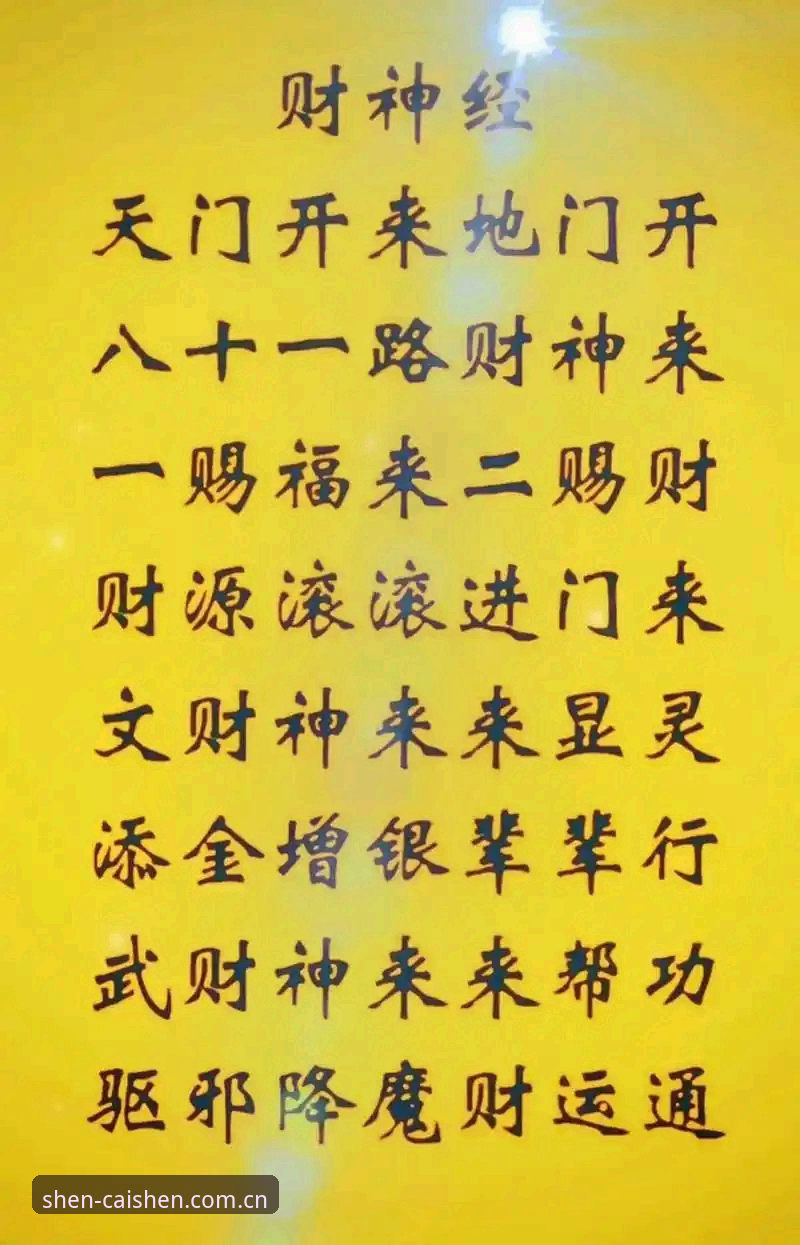 财神经
天门开来地门开
八十一路财神来
一赐福来二赐财
财源滚滚进门来
文财神来来显灵
添金增银辈辈行
武财神来来帮功
驱邪降魔财运通
shen-caishen.com.cn